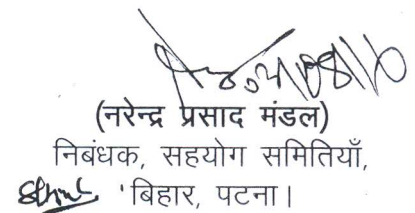 (नरेन्द्र प्रसाद मंडल)
निबंधक, सहयोग समितियाँ,
बिहार, पटना।